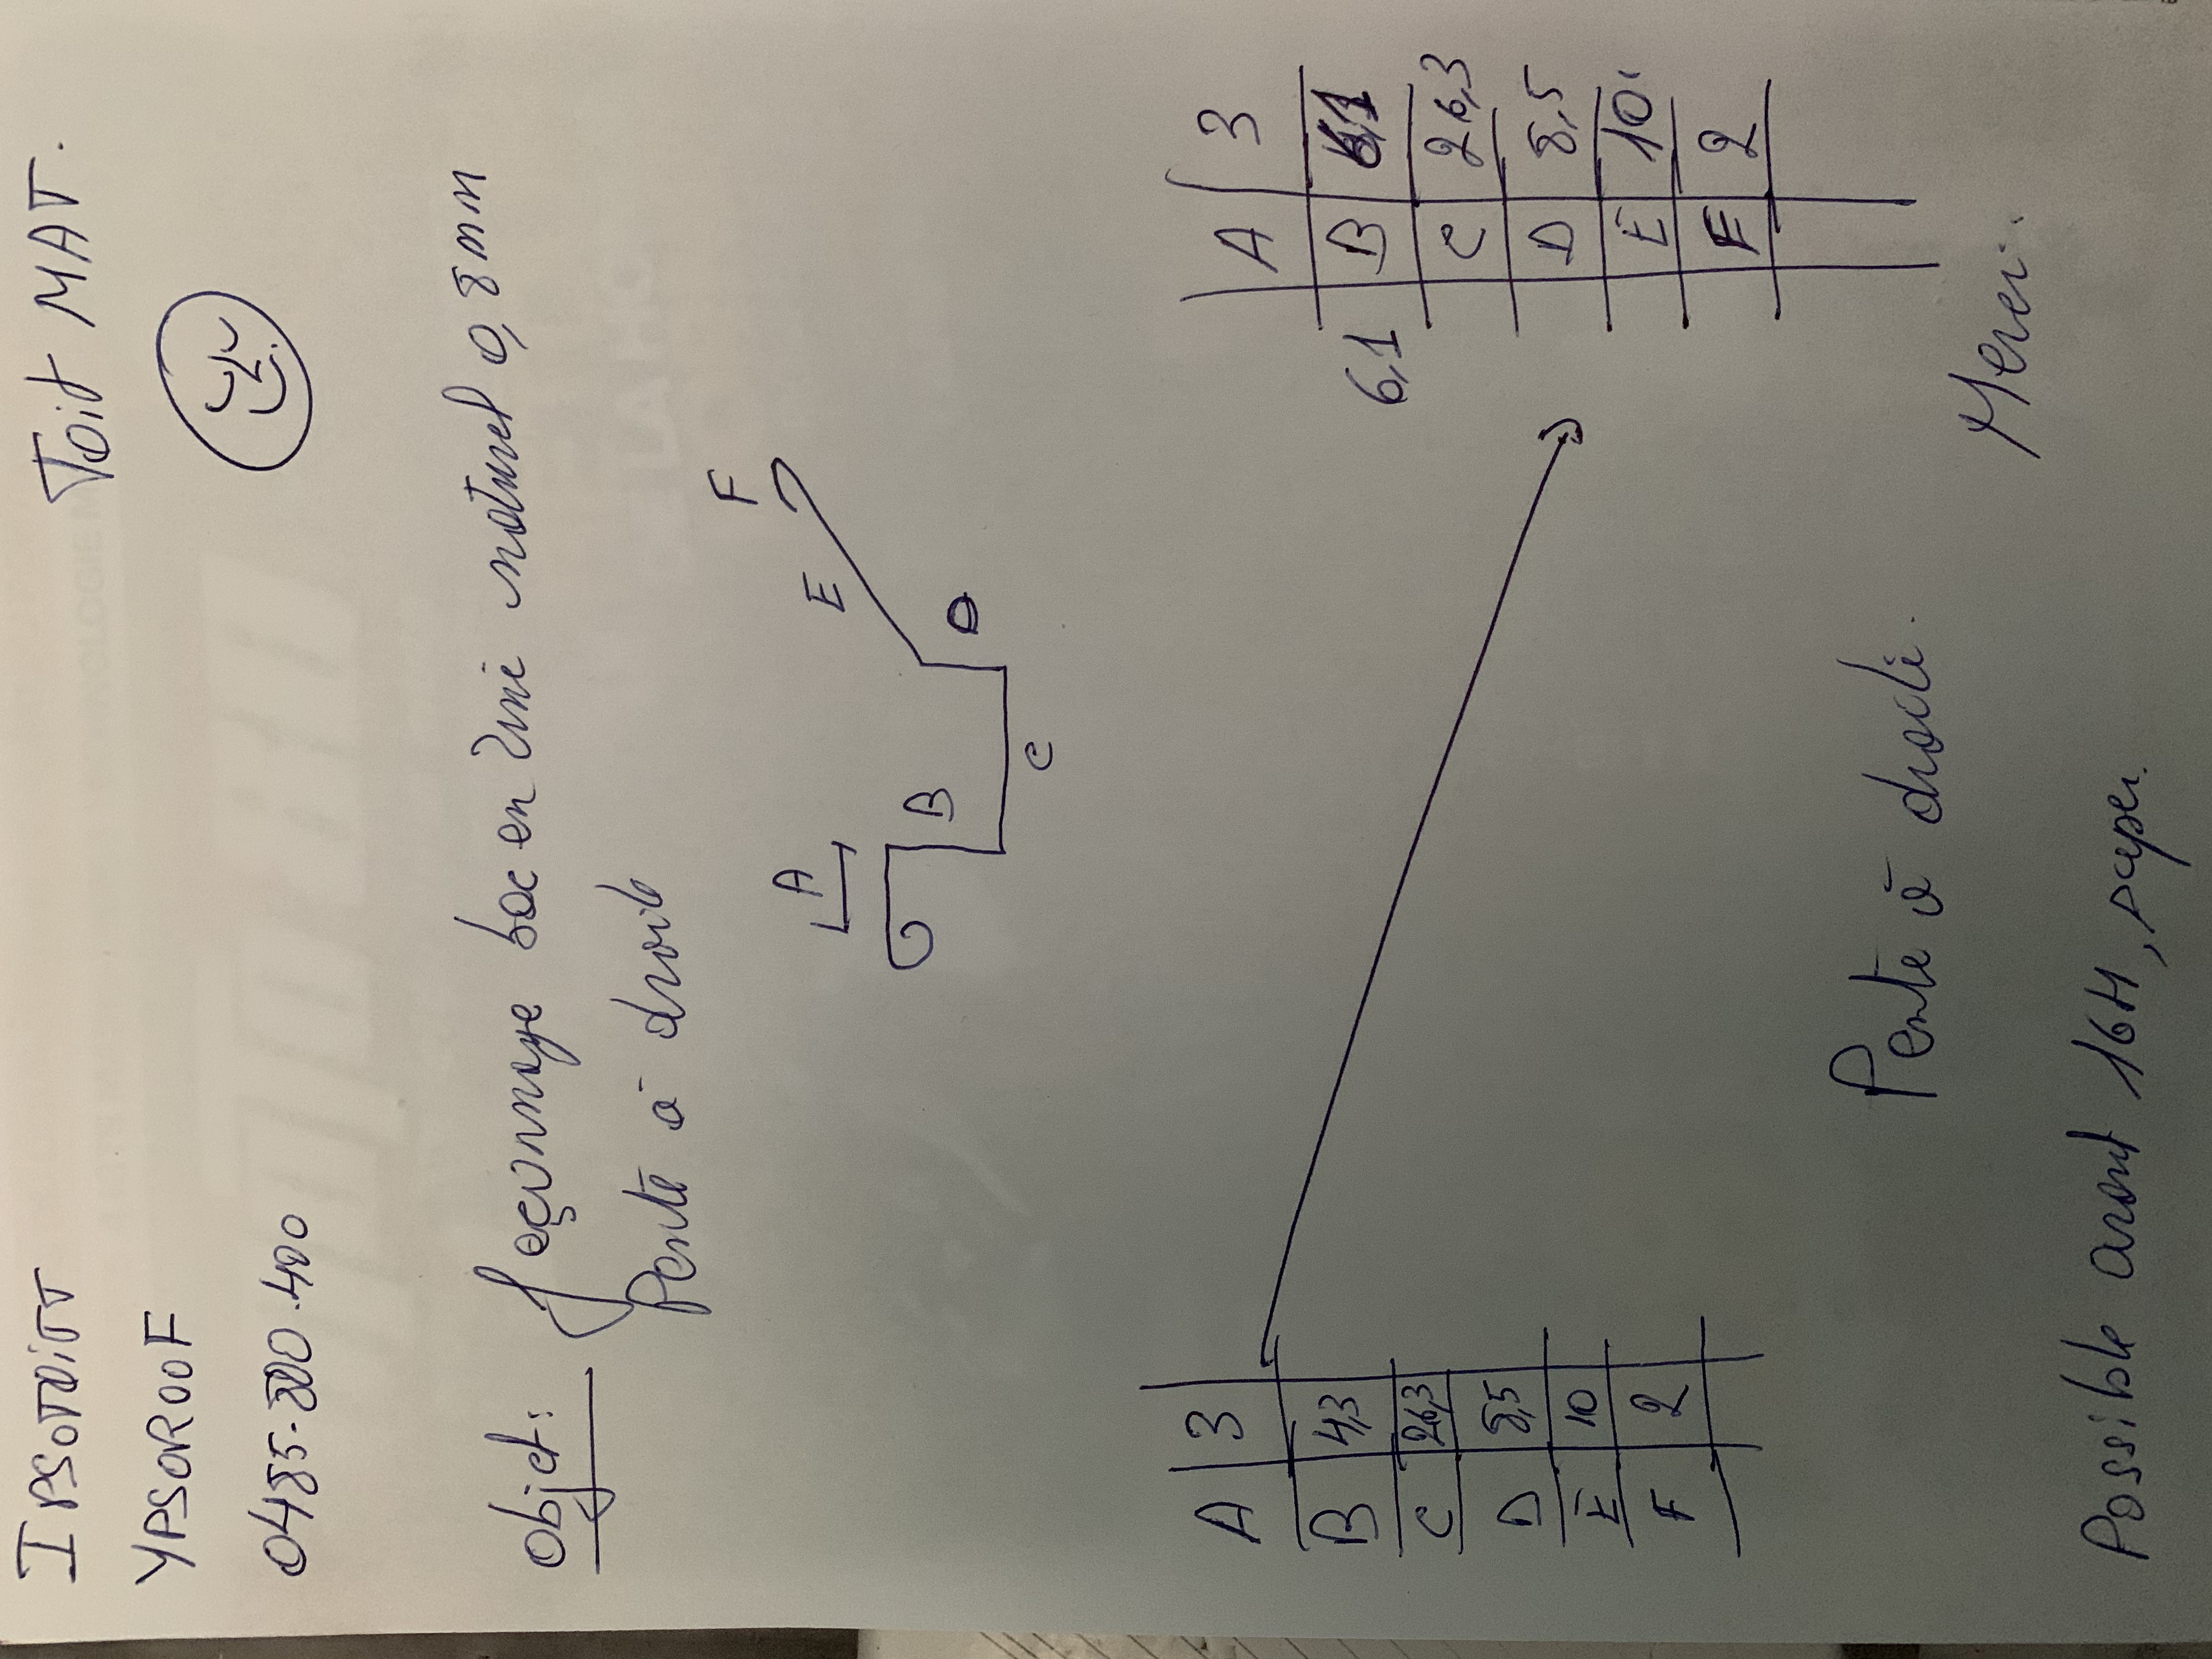 IPSOTOITT
Toit MAT.
YPSOROOF
0485-800.400
objet: façonnage bac en zinc naturel 0,8mm
Pente à droite
A
B
C
D
E
F
A 3
B 4,3
C 26,3
D 8,5
E 10
F 2
6,1
A 3
B 6,1
C 26,3
D 8,5
E 10
F 2
Pente à droite.
Merci.
Possible avant 16H, super.